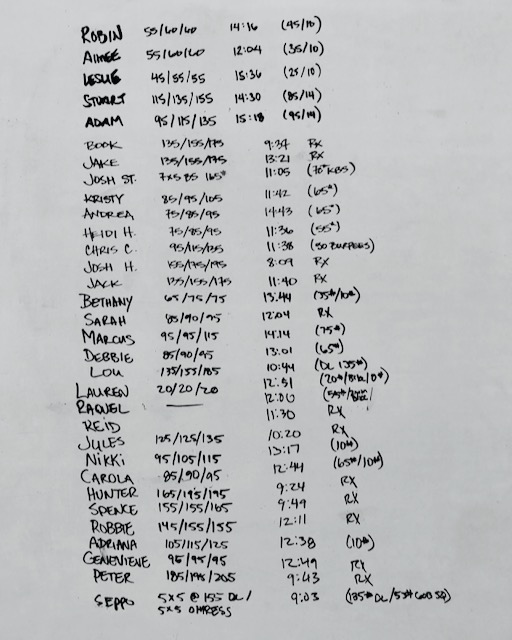 ROBIN 55/60/60 14:16 (45/10)
AIMEE 55/60/60 12:04 (35/10)
LESLIE 45/55/55 15:36 (25/10)
STUART 115/135/155 14:30 (85/14)
ADAM 95/115/135 15:18 (95/14)
BOOK 135/155/175 9:34 RX
JAKE 135/155/175 13:21 RX
JOSH ST. 7x5 85 165# 11:05 (70# KBS)
KRISTY 85/95/105 11:42 (65#)
ANDREA 75/85/95 14:43 (65#)
HEIDI H. 75/85/95 11:36 (55#)
CHRIS C. 95/115/135 11:38 (50 BURPEES)
JOSH H. 155/175/195 8:09 RX
JACK 135/155/175 11:40 RX
BETHANY 65/75/75 13:44 (35#/10#)
SARAH 85/90/95 12:04 RX
MARCUS 95/95/115 14:14 (75#)
DEBBIE 85/90/95 13:01 (65#)
LOU 135/155/185 10:44 (DL 135#)
LAUREN 20/20/20 12:51
RAQUEL — 12:06
REID 11:30 RX
JULES 125/125/135 10:20 RX
NIKKI 95/105/115 13:17 (10#)
CAROLA 85/90/95 12:44 (65#/10#)
HUNTER 165/195/195 9:24 RX
SPENCE 155/155/165 9:49 RX
ROBBIE 145/155/155 12:11 RX
ADRIANA 105/115/125 12:38 (10#)
GENEVIEVE 95/95/95 12:49 RX
PETER 185/195/205 9:43 RX
SEPPO 5x5 @ 155 DL/ 9:03
5x5